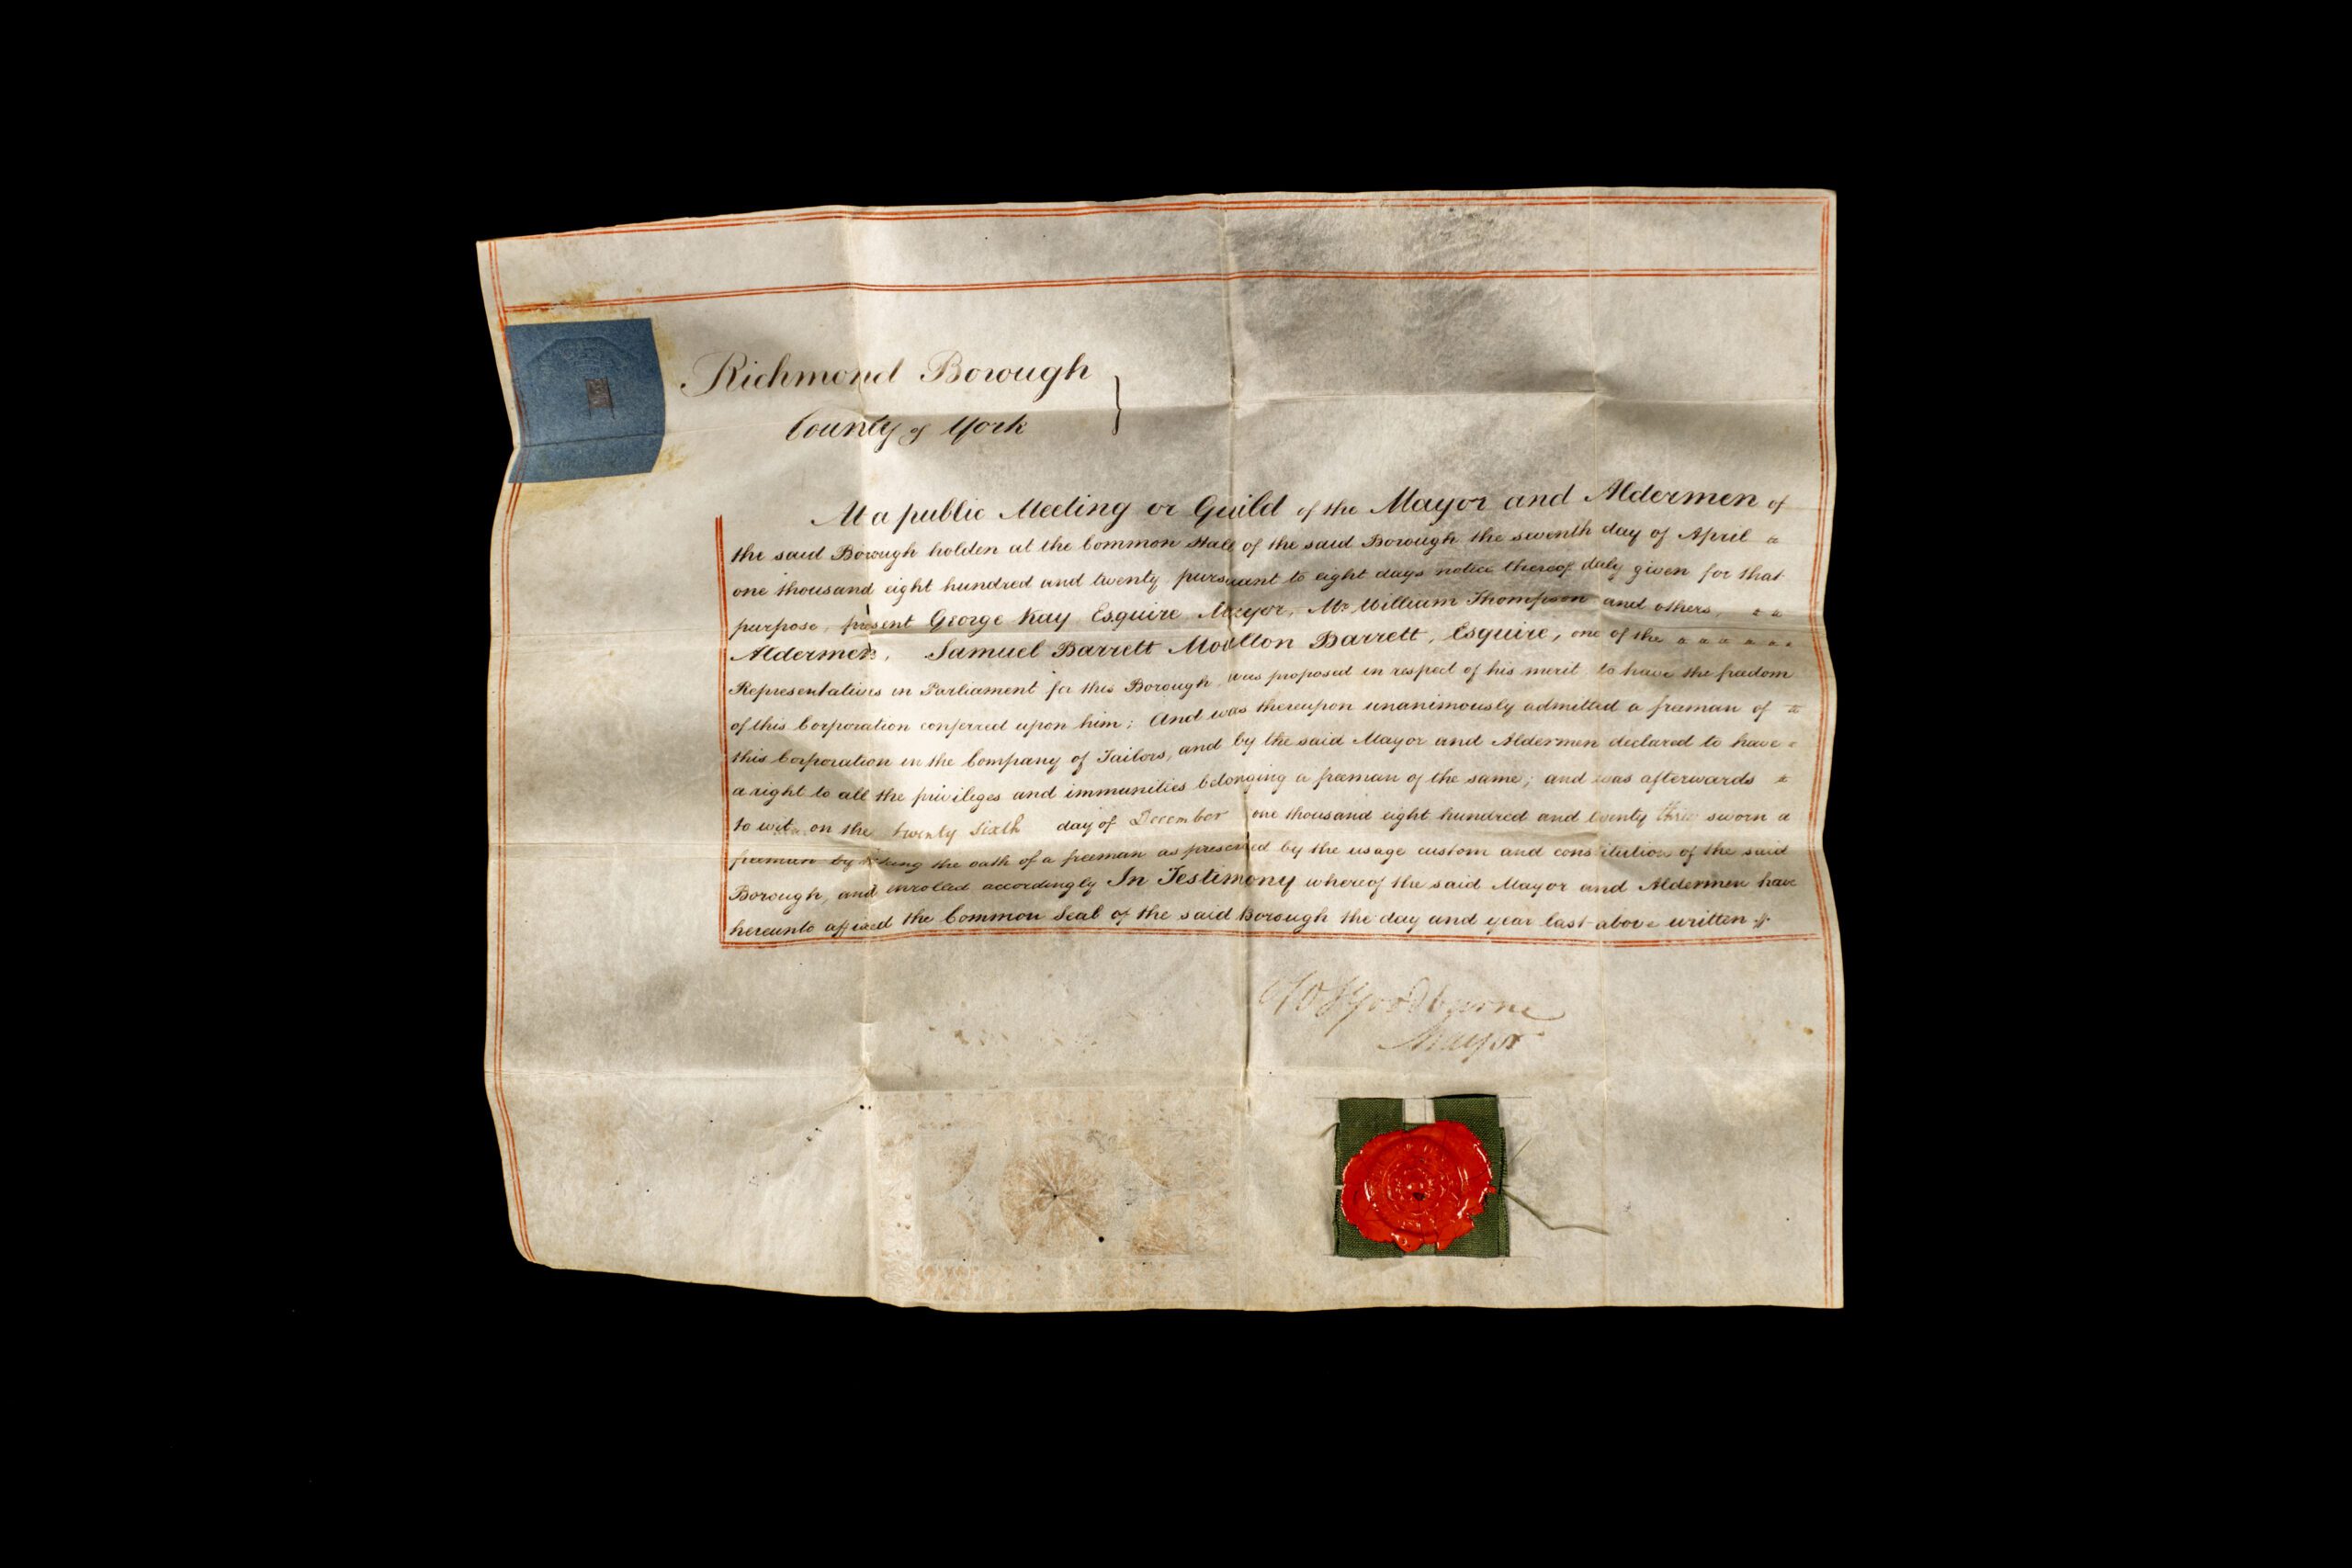 Richmond Borough
County of York
At a public Meeting or Guild of the Mayor and Aldermen of
the said Borough holden at the Common Hall of the said Borough the seventh day of April
one thousand eight hundred and twenty pursuant to eight days notice thereof duly given for that
purpose, present George Kay Esquire Mayor, Mr. William Thompson and others,
Aldermen, Samuel Barrett Moulton Barrett, Esquire, one of the
Representatives in Parliament for this Borough was proposed in respect of his merit to have the freedom
of this Corporation conferred upon him; And was thereupon unanimously admitted a freeman of
this Corporation in the Company of Tailors, and by the said Mayor and Aldermen declared to have
a right to all the privileges and immunities belonging a freeman of the same; and was afterwards
to wit on the twenty sixth day of December one thousand eight hundred and twenty three sworn a
freeman by taking the oath of a freeman as prescribed by the usage custom and constitution of the said
Borough, and enrolled accordingly In Testimony whereof the said Mayor and Aldermen have
hereunto affixed the Common Seal of the said Borough the day and year last above written
Goodburne
Mayor